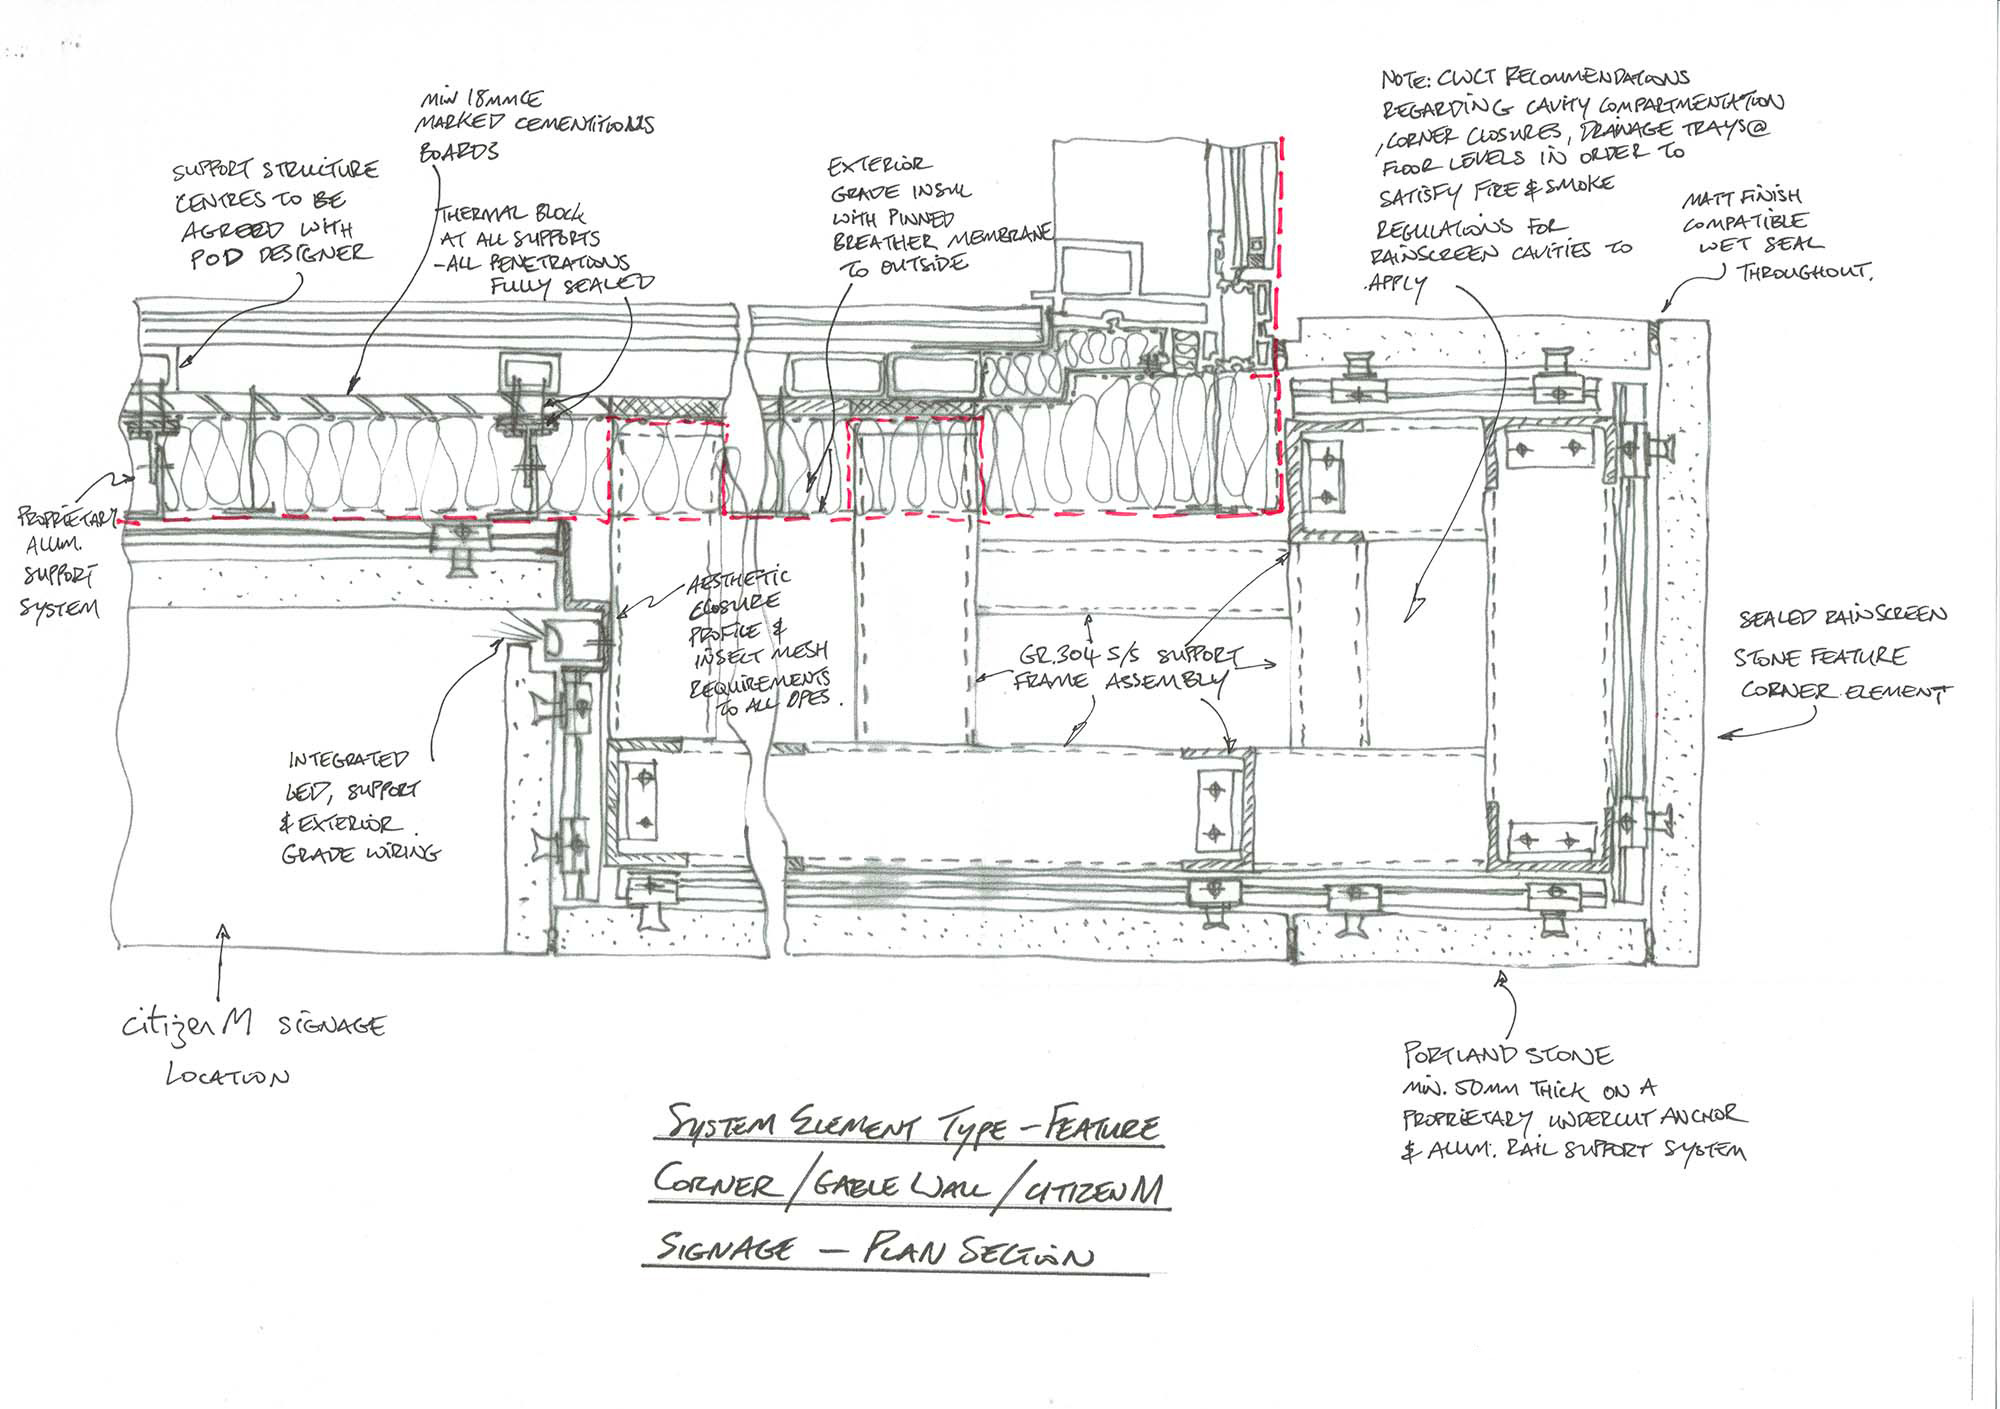 MIN 18MM CE
MARKED CEMENTITIOUS
BOARDS
SUPPORT STRUCTURE
CENTRES TO BE
AGREED WITH
POD DESIGNER
THERMAL BLOCK
AT ALL SUPPORTS
-ALL PENETRATIONS
FULLY SEALED
EXTERIOR
GRADE INSUL
WITH PINNED
BREATHER MEMBRANE
TO OUTSIDE
NOTE: CWCT RECOMMENDATIONS
REGARDING CAVITY COMPARTMENTATION
, CORNER CLOSURES, DRAINAGE TRAYS @
FLOOR LEVELS IN ORDER TO
SATISFY FIRE & SMOKE
REGULATIONS FOR
RAINSCREEN CAVITIES TO
APPLY
MATT FINISH
COMPATIBLE
WET SEAL
THROUGHOUT.
PROPRIETARY
ALUM.
SUPPORT
SYSTEM
AESTHETIC
CLOSURE
PROFILE &
INSECT MESH
REQUIREMENTS
TO ALL OPES.
GR.304 S/S SUPPORT
FRAME ASSEMBLY
SEALED RAINSCREEN
STONE FEATURE
CORNER ELEMENT
INTEGRATED
LED, SUPPORT
& EXTERIOR
GRADE WIRING
citizenM SIGNAGE
LOCATION
PORTLAND STONE
MIN. 50MM THICK ON A
PROPRIETARY UNDERCUT ANCHOR
& ALUM. RAIL SUPPORT SYSTEM
SYSTEM ELEMENT TYPE - FEATURE
CORNER / GABLE WALL / CITIZEN M
SIGNAGE - PLAN SECTION